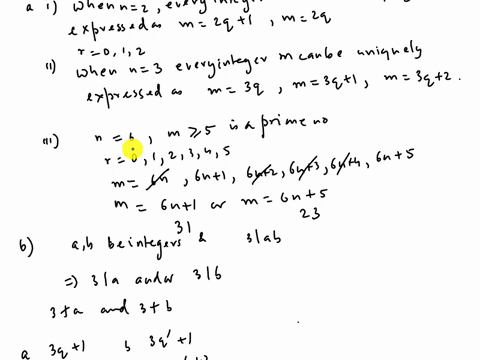 a i) When n=2, every integer
expressed as m = 2q+1 , m = 2q
r = 0, 1, 2
ii) When n=3 every integer m can be uniquely
expressed as m = 3q , m = 3q+1 , m = 3q+2 .
iii) n = 6 , m ≥ 5 is a prime no
r = 0, 1, 2, 3, 4, 5
m = 6n , 6n+1 , 6n+2, 6n+3, 6n+4, 6n+5
m = 6n+1 or m = 6n+5
31 23
b) a, b be integers & 3|ab
⇒ 3|a and/or 3|b
3∤a and 3∤b
a 3q+1 b 3q'+1